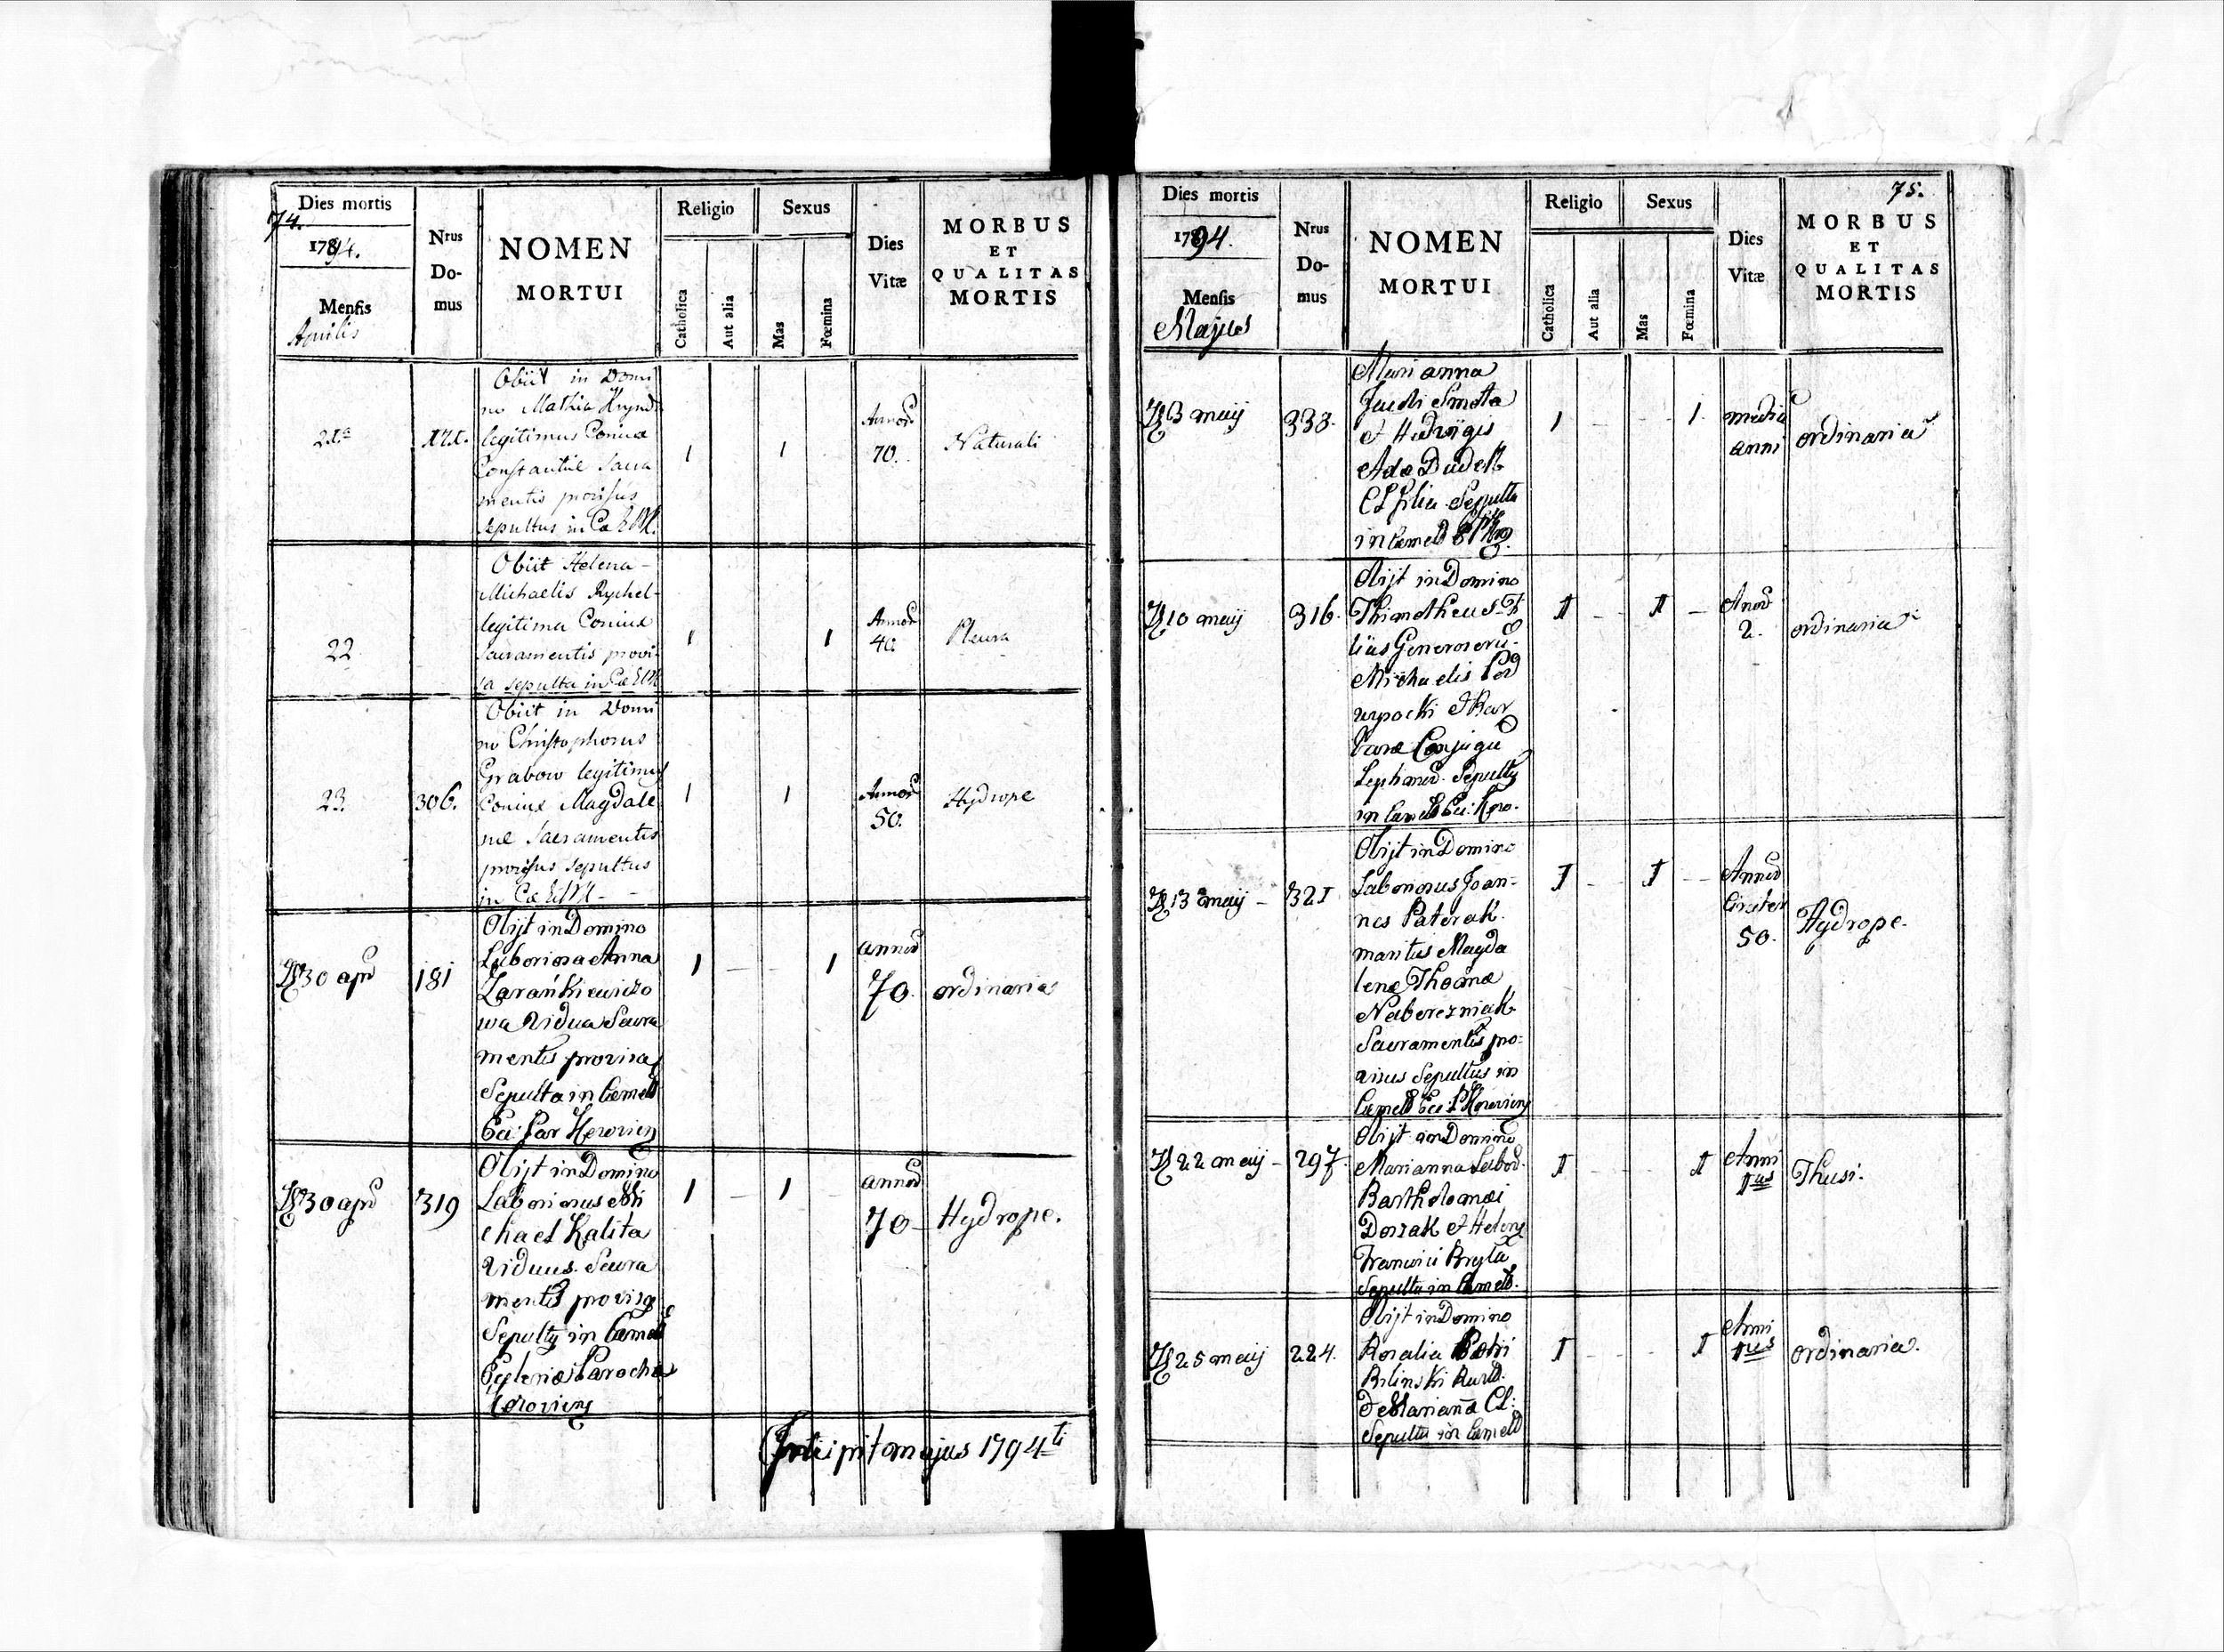 74.
Dies mortis
1794.
Mensis
Aprilis
Nrus
Do-
mus
NOMEN
MORTUI
Religio
Catholica
Aut alia
Sexus
Mas
Fœmina
Dies
Vitæ
MORBUS
ET
QUALITAS
MORTIS
Obiit in Domi
no Mathia
legitimus Coniux
Constantiæ Sacra
mentis provisus
sepultus in
1
1
Annor
70.
Naturali
22
Obiit Helena
Michaelis Rychel
legitima Coniux
Sacramentis provi
sa sepulta in
1
1
Annor
40
Pleura
23.
306.
Obiit in Domi
no Christophorus
Grabow legitimus
Coniux Magdale
næ Sacramentis
provisus sepultus
in
1
1
Annor
50.
Hydrope
30 apr
181
Obijt in Domino
Laboriosa Anna
Zarańkiewiczo
wa Vidua Sacra
mentis provisa
Sepulta in Cemet
Ecc: Par
1
1
annor
70.
ordinaria
30 apr
319
Obijt in Domino
Laboriosus Mi
chael Kalita
Viduus Sacra
mentis
Sepultg in Cemet
Parochia
1
1
annor
70
Hydrope.
Incipit majus 1794ti
75.
Dies mortis
1794.
Mensis
Majus
Nrus
Do-
mus
NOMEN
MORTUI
Religio
Catholica
Aut alia
Sexus
Mas
Fœmina
Dies
Vitæ
MORBUS
ET
QUALITAS
MORTIS
3 maij
333.
Marianna
Smeta
et Hedvigis
Adæ Dudek
Cl filia Sepulta
in Cemet
1
1
media
anni
ordinaria
10 maij
316.
Obijt in Domino
Thimotheus Fi
lius Generosoru
Michaelis Pod
wysocki et Bar
baræ Conjugu
Sepultg
in Cemet
1
1
Anor
2.
ordinaria
13 maij
321
Obijt in Domino
Laboriosus Joan-
nes Paterak.
maritus Magda
lenæ Thomæ
Nabereznia​k
Sacramentis pro-
visus Sepultus in
Cemet Ecc: P
1
1
Annor
Circiter
50.
Hydrope.
22 maij
297.
Obijt in Domino
Marianna Labor.
Bartholomæi
Dorzak et Helenæ
Francisci Bryla
Sepulta in Cemet.
1
1
Anni
1us
Thusi.
25 maij
224.
Obijt in Domino
Rosalia Petri
Bilinski
Marianæ Cl:
Sepulta in Cemet
1
1
Anni
1us
ordinaria.